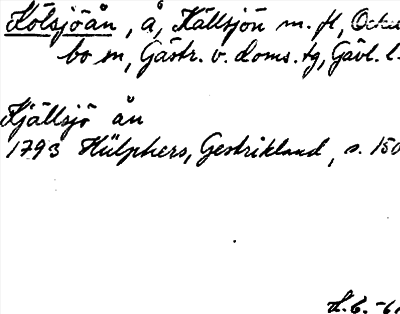 Kölsjöån, å, Källsjön m. fl, Ocku
bo sn, Gästr. v. doms. tg, Gävl. l.
Kjällsjö ån
1793 Hülphers, Gestrikland, s. 150